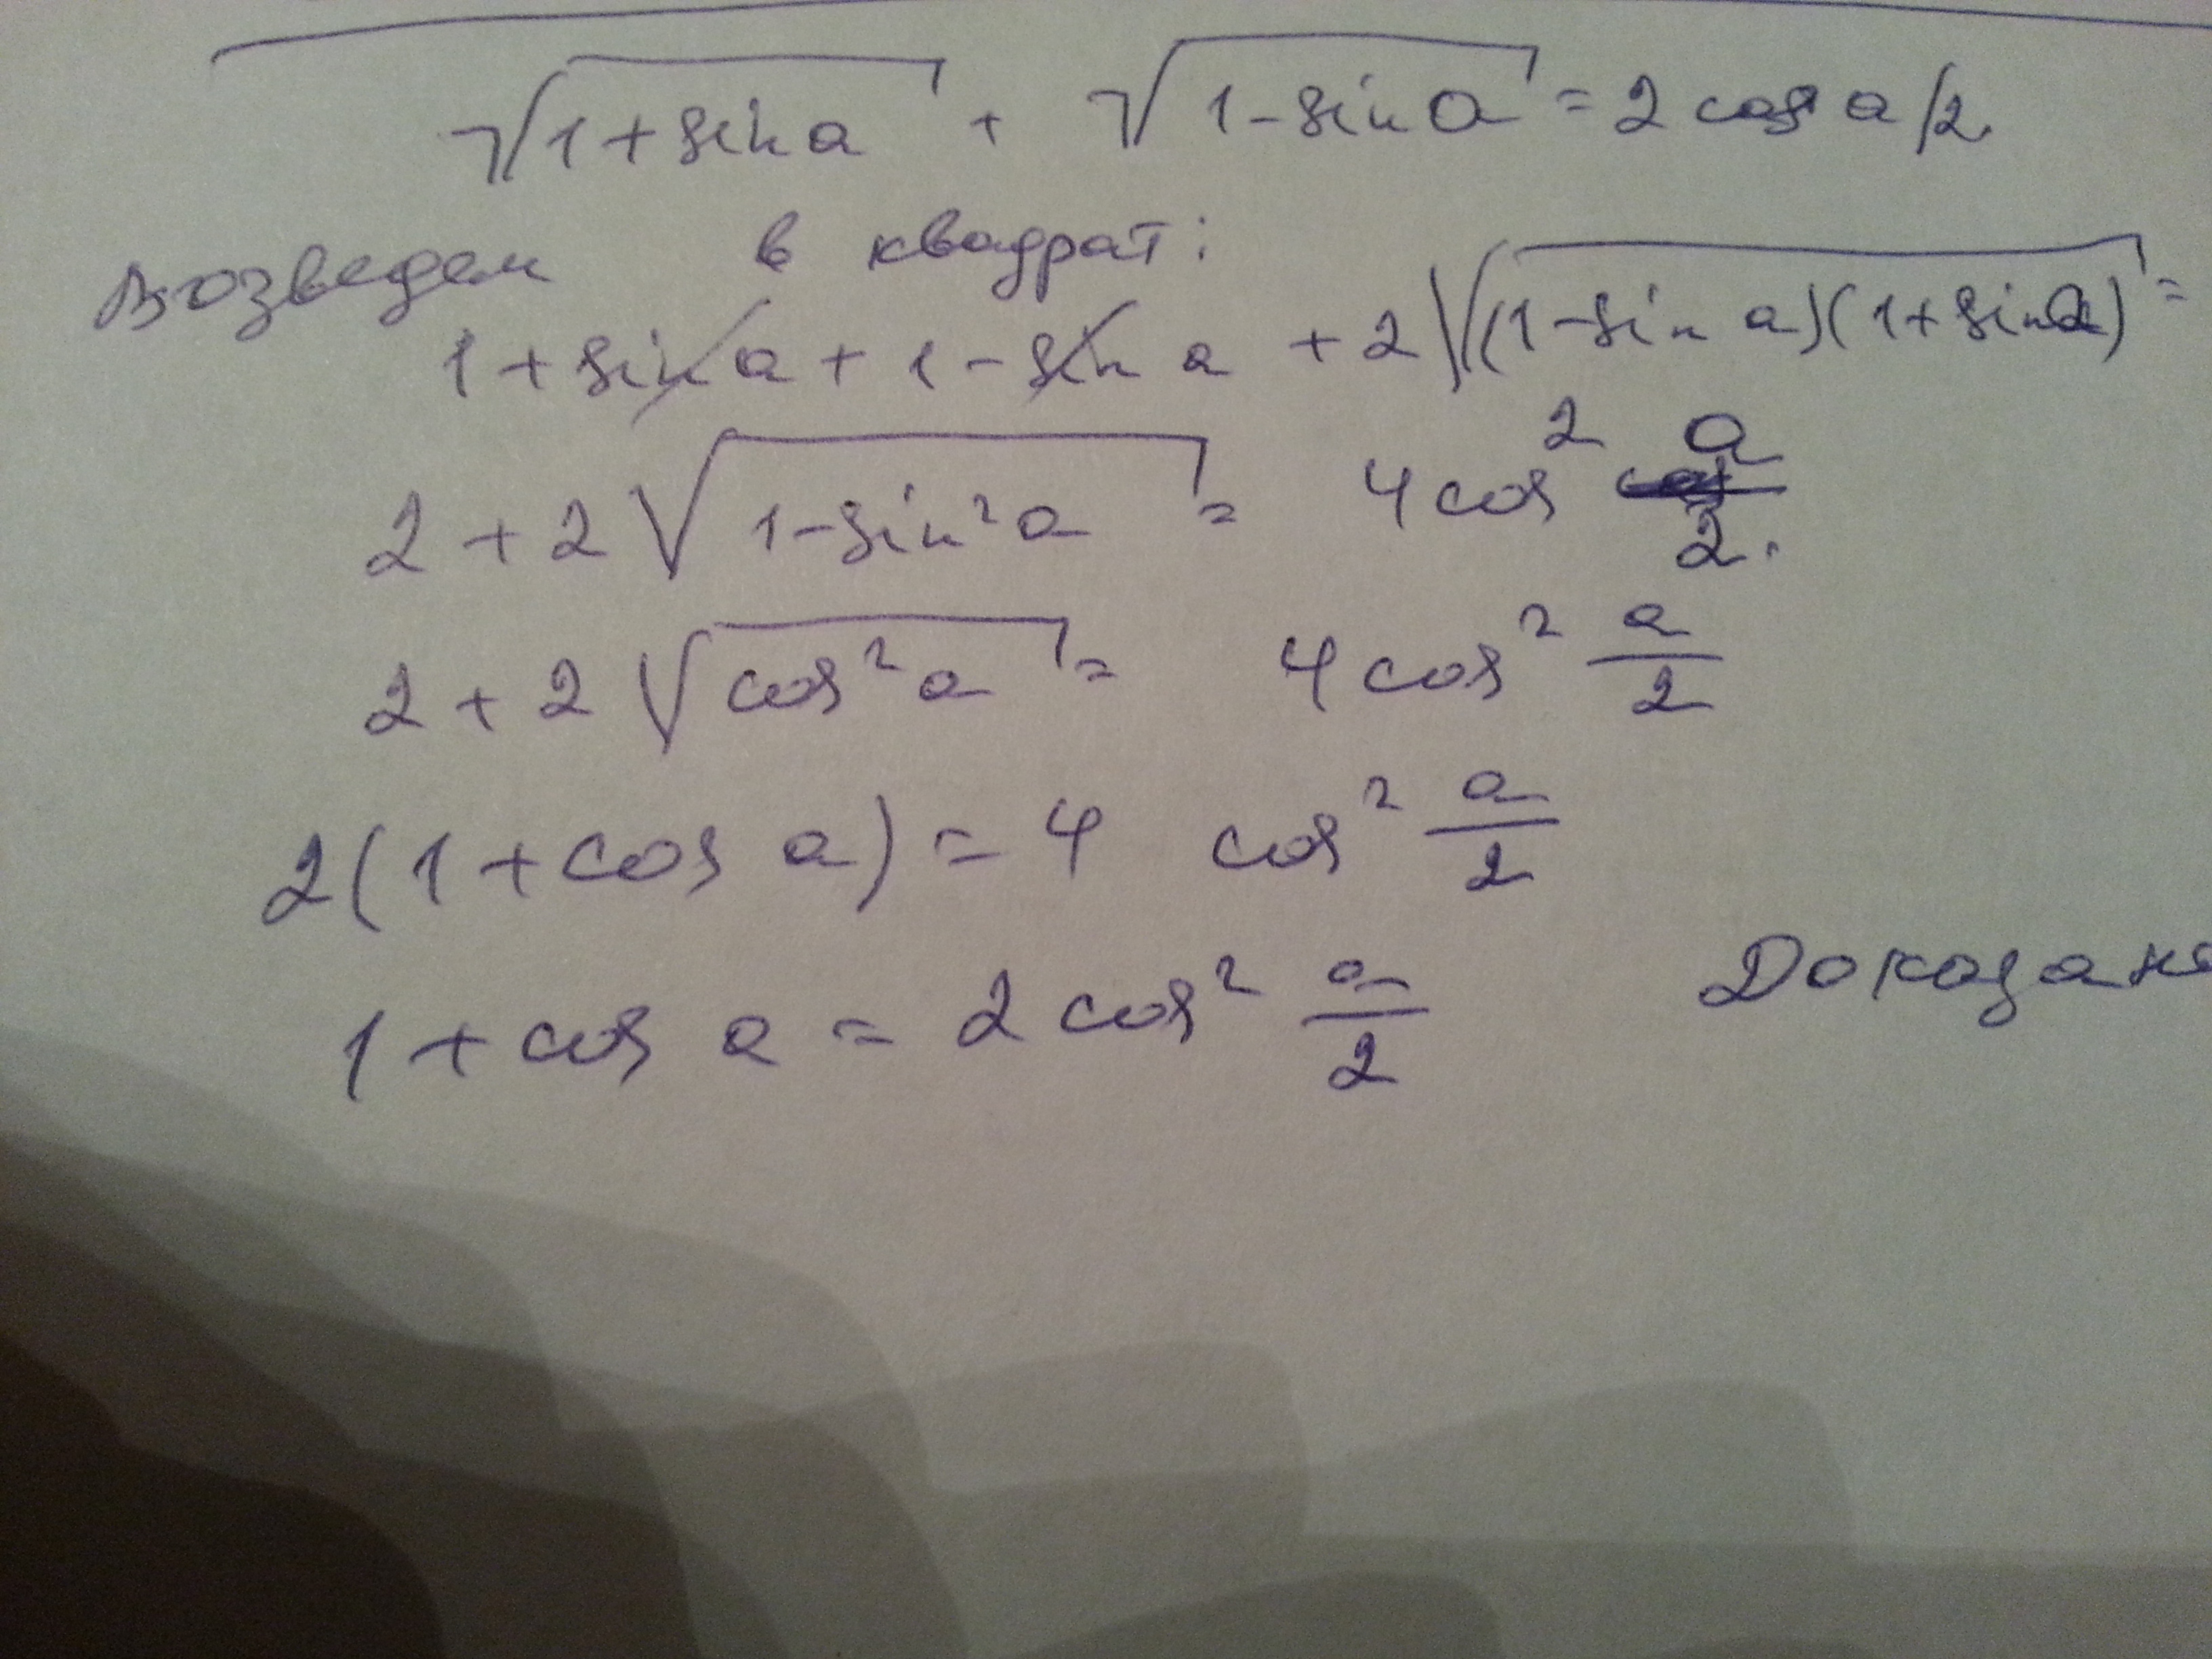 √(1+sin a) + √(1-sin a) = 2 cos a/2.
Возведем в квадрат:
1 + sin a + 1 - sin a + 2√((1-sin a)(1+sin a)) =
2 + 2√(1-sin²a) = 4 cos² a/2.
2 + 2√(cos²a) = 4 cos² a/2
2(1+cos a) = 4 cos² a/2
1 + cos a = 2 cos² a/2 Доказано